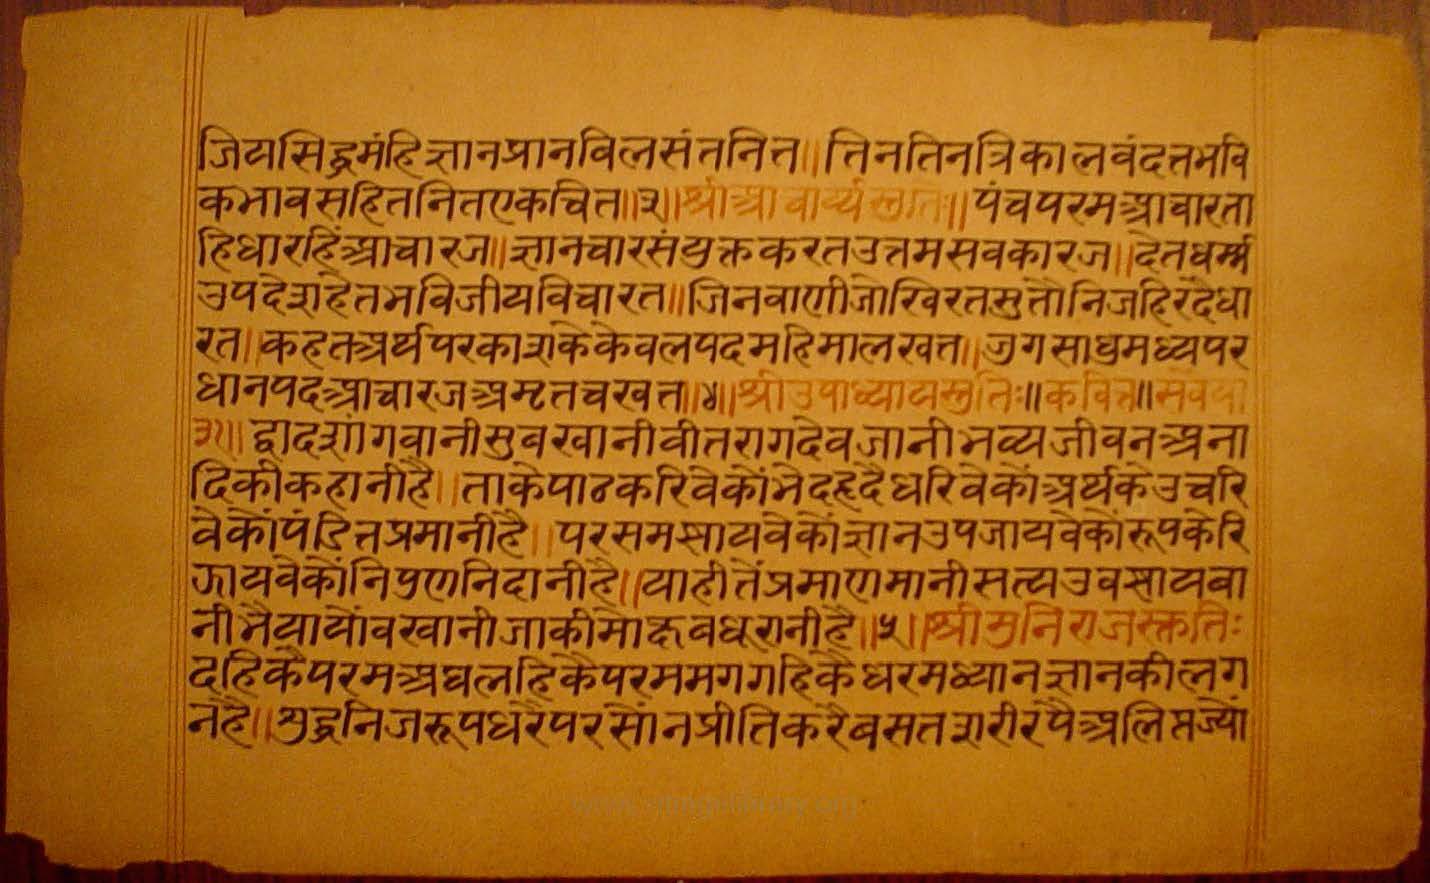 जियसिद्धमंहिज्ञानप्रानविलसंतनित॥ तिनतिनत्रिकालवंदतभवि
कभावसहितनितएकचित॥३॥श्रीआचार्यस्तुतिः॥ पंचपरमआचारता
हिधारहिंआचारज॥ज्ञानचारसंयुक्तकरतउत्तमसवकारज॥देतधर्म्म
उपदेशहेतभविजीयविचारत॥जिनवाणीजोखिरतसुतौनिजहिरदैधा
रत॥कहतअर्थपरकाशकेकेवलपदमहिमालखत॥जुगसाधुमध्यपर
धानपदआचारजअमृतचखत॥४॥श्रीउपाध्यायस्तुतिः॥कवित्त॥सवैया
३१॥ द्वादशांगवानीसुवखानीवीतरागदेवजानीभव्यजीवनअना
दिकीकहानीहै॥ताकेपाठकरिवेकोंभेदहृदैधरिवेकोंअर्थकेउचरि
वेकोंपंडितप्रमानीहै॥परसमझायवेकोंज्ञानउपजायवेकोंरूपकेरि
झायवेकोंनिपुणनिदानीहै॥याहीतेंप्रमाणमानीसत्यउवझायवा
नीभैयायोंवखानीजाकीमोक्षवधूरानीहै॥५॥श्रीमुनिराजस्तुतिः
दहिकैपरमअघलहिकैपरममगगहिकैधरमध्यानज्ञानकीलग
नहै॥शुद्धनिजरूपधरैपरसौंनप्रीतिकरैबसतशरीरपैअलिप्तज्यों